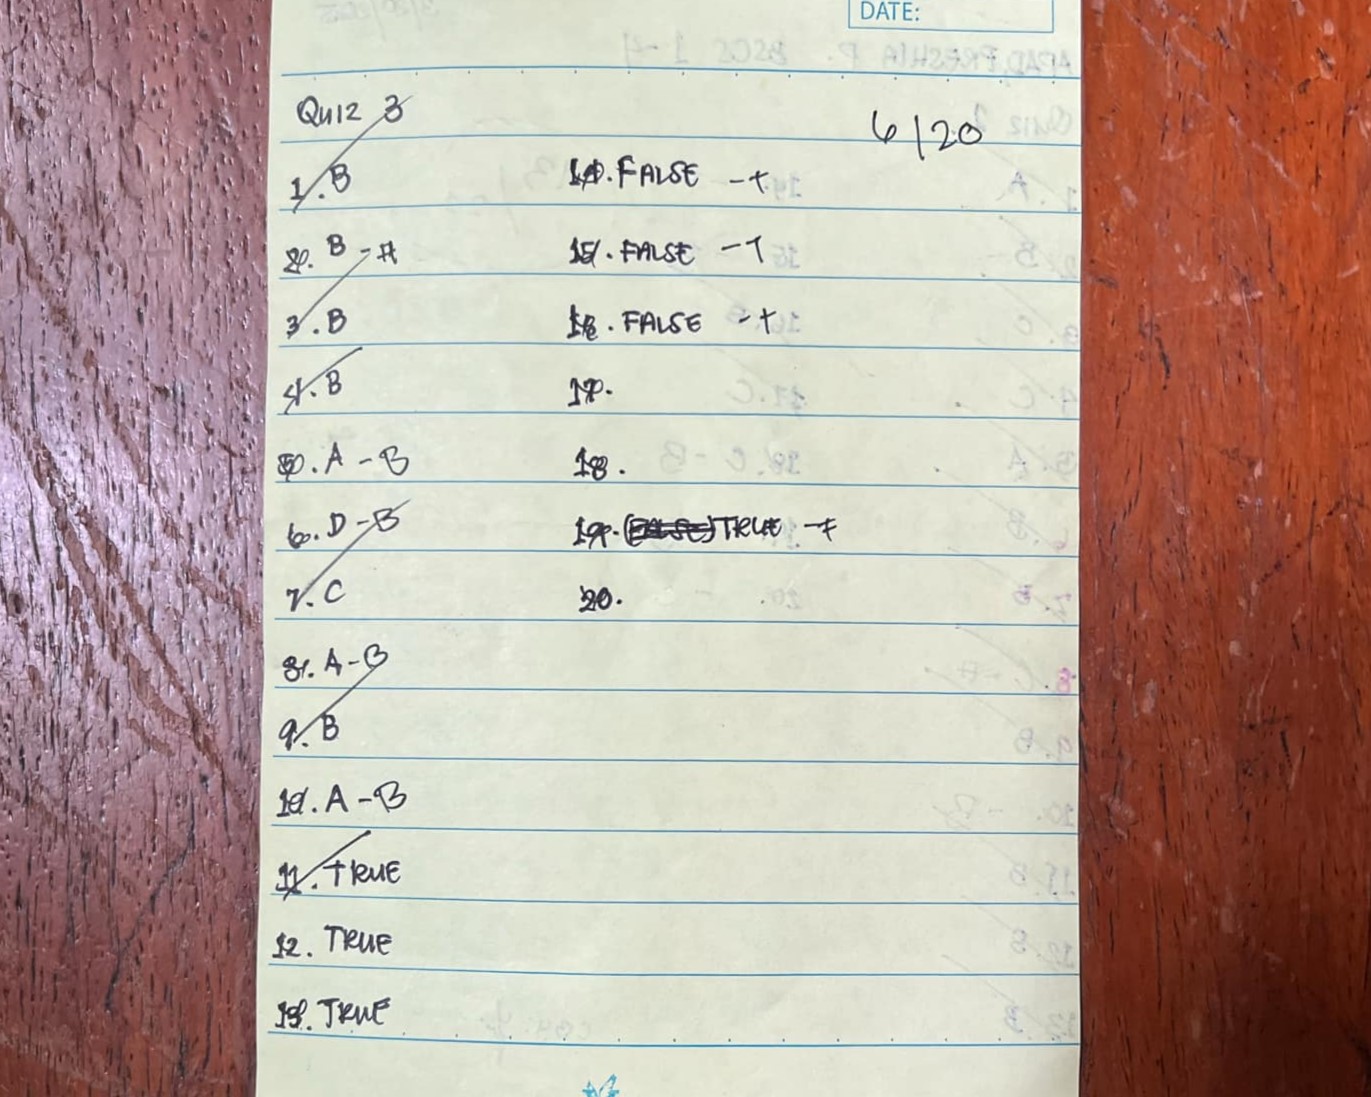 DATE:
Quiz 3
6/20
1. B
2. B - A
3. B
4. B
5. A - B
6. D - B
7. C
8. A - B
9. B
10. A - B
11. TRUE
12. TRUE
13. TRUE
14. FALSE - T
15. FALSE - T
16. FALSE - T
17.
18.
19. (FALSE) TRUE - F
20.